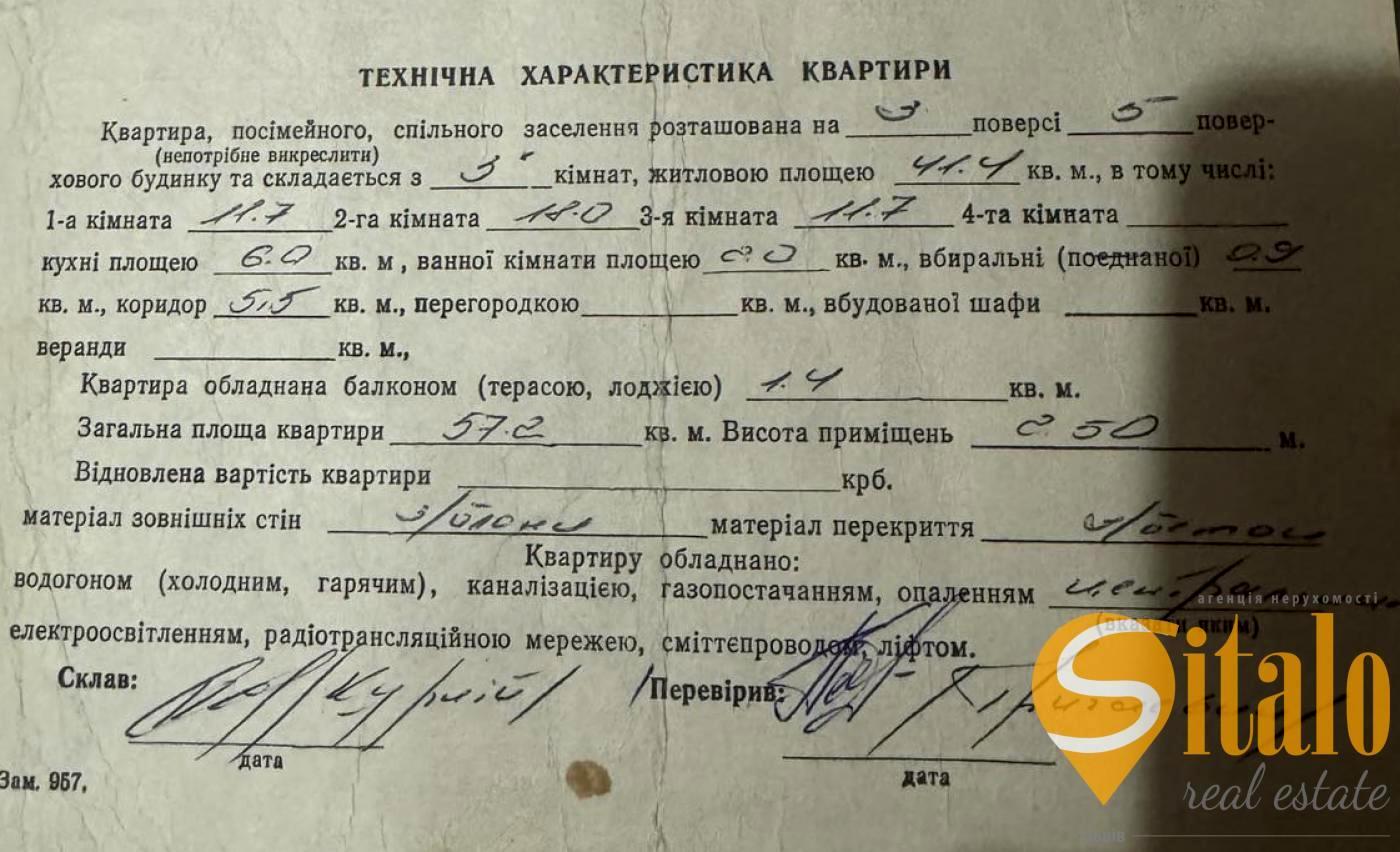 ТЕХНІЧНА ХАРАКТЕРИСТИКА КВАРТИРИ
Квартира, посімейного, спільного заселення розташована на 3 поверсі 5 повер-
(непотрібне викреслити)
хового будинку та складається з 3 кімнат, житловою площею 41.4 кв. м., в тому числі:
1-а кімната 11.7 2-га кімната 18.0 3-я кімната 11.7 4-та кімната
кухні площею 6.0 кв. м , ванної кімнати площею 2.0 кв. м., вбиральні (поєднаної) 0.9
кв. м., коридор 5,5 кв. м., перегородкою кв. м., вбудованої шафи кв. м.
веранди кв. м.,
Квартира обладнана балконом (терасою, лоджією) 1.4 кв. м.
Загальна площа квартири 57.2 кв. м. Висота приміщень 2.50 м.
Відновлена вартість квартири крб.
матеріал зовнішніх стін з/блоки матеріал перекриття з/бетон
Квартиру обладнано:
водогоном (холодним, гарячим), каналізацією, газопостачанням, опаленням
агенція нерухомості
(вказати яким)
електроосвітленням, радіотрансляційною мережею, сміттєпроводом, ліфтом.
Склав: Перевірив:
дата дата
Зам. 957,
Sitalo
real estate